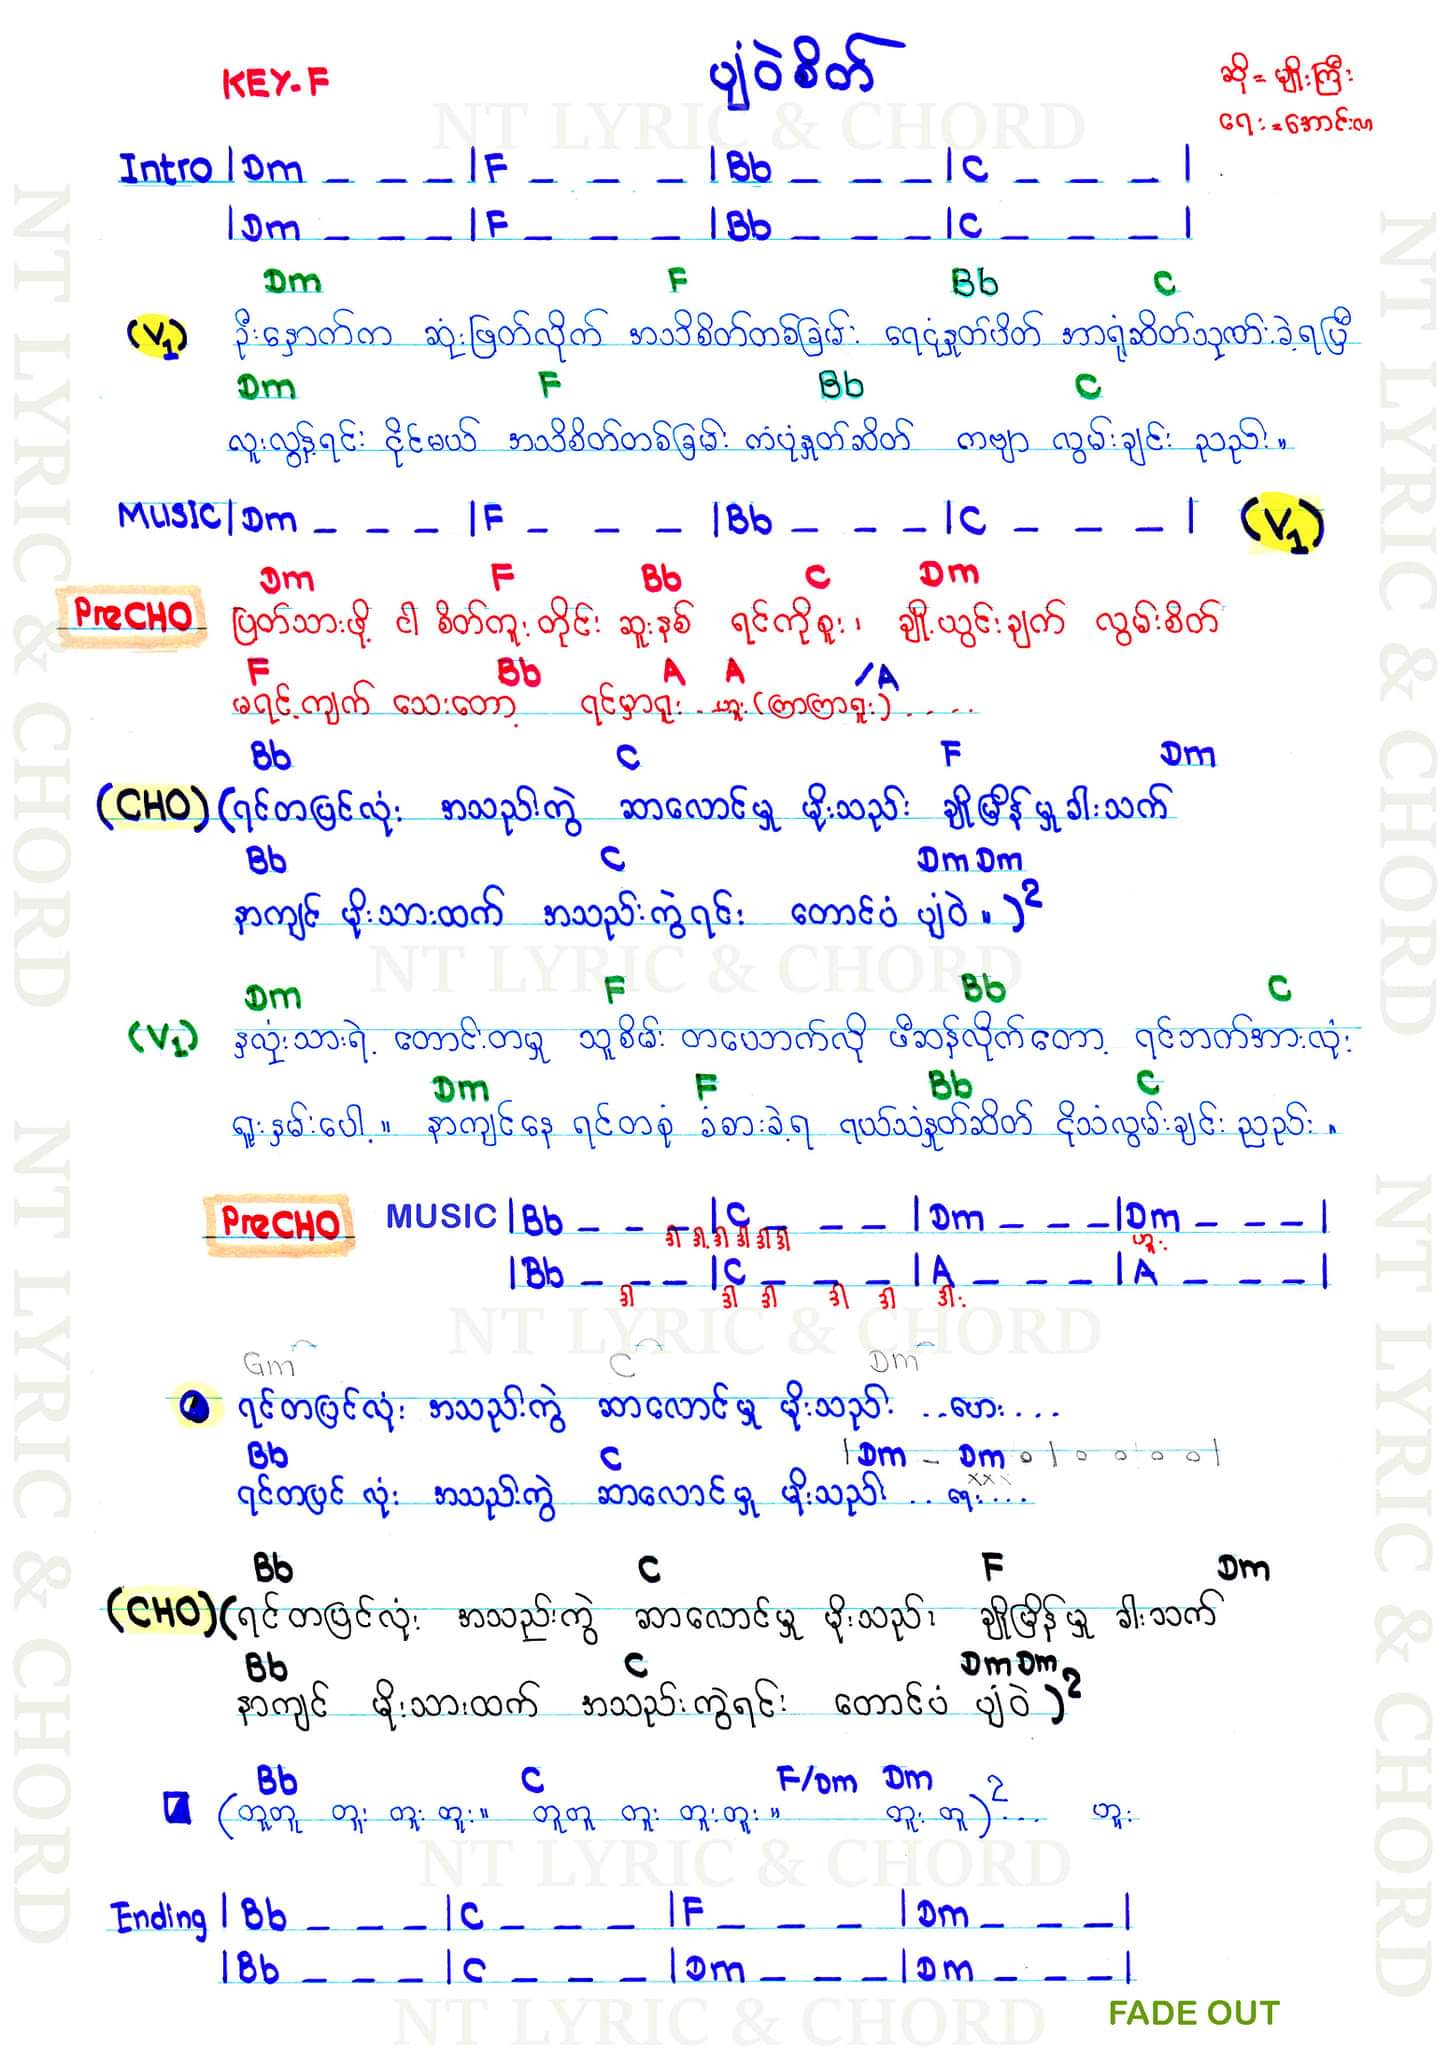 KEY-F
ပျံဝဲစိတ်
ဆို = မျိုးကြီး
ရေး = အောင်လ
NT LYRIC & CHORD
Intro |Dm _ _ _ |F _ _ _ |Bb _ _ _ |C _ _ _ |
|Dm _ _ _ |F _ _ _ |Bb _ _ _ |C _ _ _ |
Dm F Bb C
(V1) ဦးနှောက်က ဆုံးဖြတ်လိုက် အသိစိတ်တစ်ခြမ်း ရေငုံနှုတ်ပိတ် အာရုံဆိတ်သုဉ်းခဲ့ရပြီ
Dm F Bb C
လူးလွန့်ရင်း ငိုင်မယ် အသိစိတ်တစ်ခြမ်း ကံပုံနှုတ်ဆိတ် ကဗျာ လွမ်းချင်း ညည်း။
MUSIC |Dm _ _ _ |F _ _ _ |Bb _ _ _ |C _ _ _ | (V1)
Dm F Bb C Dm
PreCHO ပြတ်သားဖို့ ငါ စိတ်ကူးတိုင်း ဆူးနစ် ရင်ကိုစူး၊ ချို့ယွင်းချက် လွမ်းစိတ်
F Bb A A /A
မရင့်ကျက် သေးတော့ ရင်မှာရူး .. ဟူး (ကြာကြာရူး) ....
Bb C F Dm
(CHO) (ရင်တပြင်လုံး အသည်းကွဲ ဆာလောင်မှု မိုးသည်း ချိုမြိန်မှု ခါးသက်
Bb C Dm Dm
နာကျင် မိုးသားထက် အသည်းကွဲရင်း တောင်ပံ ပျံဝဲ ။ )2
NT LYRIC & CHORD
Dm F Bb C
(V2) နှလုံးသားရဲ့ တောင်းတမှု သူစိမ်း တယောက်လို ဖီဆန်လိုက်တော့ ရင်ဘက်အားလုံး
Dm F Bb C
ရူးနှမ်းပေါ့ ။ နာကျင်နေ ရင်တစုံ ခံစားခဲ့ရ ရယ်သံနှုတ်ဆိတ် ငိုသံလွမ်းချင်း ညည်း ။
PreCHO MUSIC |Bb _ _ _ |C _ _ _ |Dm _ _ _ |Dm _ _ _ |
ဒါ ဒါ ဒါ ဒါ ဒါ ဒါ ဟူး
|Bb _ _ _ |C _ _ _ |A _ _ _ |A _ _ _ |
ဒါ ဒါ ဒါ ဒါ ဒါ ဒါး
NT LYRIC & CHORD
Gm C Dm
ရင်တပြင်လုံး အသည်းကွဲ ဆာလောင်မှု မိုးသည်း ..ဟေး ...
Bb C |Dm _ Dm o | o o o o |
xxx
ရင်တပြင်လုံး အသည်းကွဲ ဆာလောင်မှု မိုးသည်း .. ရေး ...
Bb C F Dm
(CHO) (ရင်တပြင်လုံး အသည်းကွဲ ဆာလောင်မှု မိုးသည်း ချိုမြိန်မှု ခါးသက်
Bb C Dm Dm
နာကျင် မိုးသားထက် အသည်းကွဲရင်း တောင်ပံ ပျံဝဲ )2
Bb C F/Dm Dm
(တူတူ တူး တူး တူး။ တူတူ တူး တူး တူး။ တူး တူ )2 ... ဟူး
NT LYRIC & CHORD
Ending |Bb _ _ _ |C _ _ _ |F _ _ _ |Dm _ _ _ |
|Bb _ _ _ |C _ _ _ |Dm _ _ _ |Dm _ _ _ |
NT LYRIC & CHORD
FADE OUT